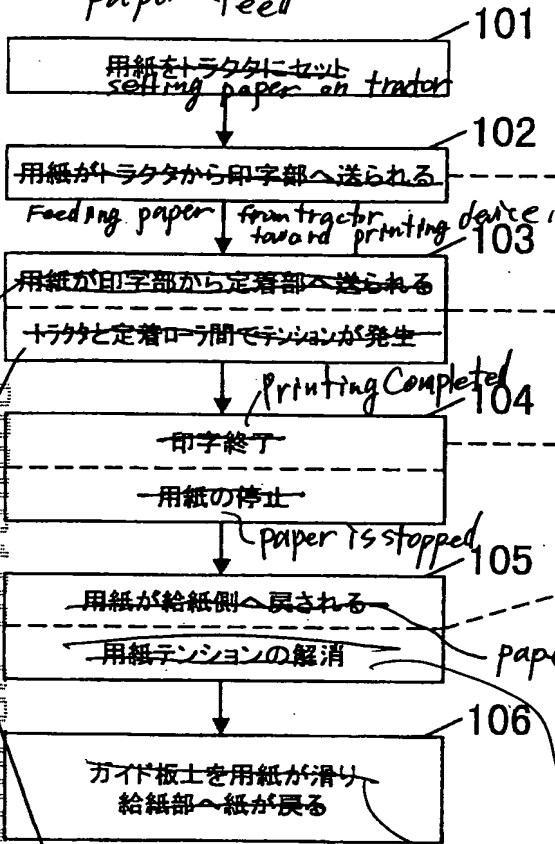 paper feed
101
用紙をトラクタにセット
setting paper on tractor
102
用紙がトラクタから印字部へ送られる
Feeding paper from tractor
toward printing device
103
用紙が印字部から定着部へ送られる
トラクタと定着ローラ間でテンションが発生
Printing Completed
104
印字終了
用紙の停止
paper is stopped
105
用紙が給紙側へ戻される
用紙テンションの解消
106
ガイド板上を用紙が滑り
給紙部へ紙が戻る